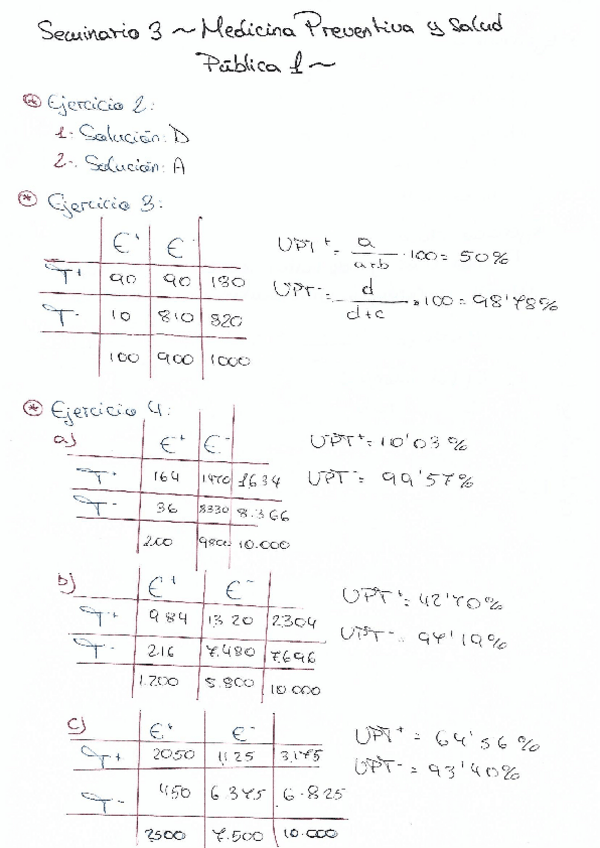 Seminario 3 ~ Medicina Preventiva y Salud
Pública 1 ~
* Ejercicio 2:
1. Solución: D
2-. Solución: A
* Ejercicio 3:
E+ E-
T+ 90 90 180
T- 10 810 820
100 900 1000
VPT+ = a/a+b · 100 = 50%
VPT- = d/d+c · 100 = 98'78%
* Ejercicio 4:
a)
E+ E-
T+ 164 1470 1634
T- 36 8330 8.366
200 9800 10.000
VPT+ = 10'03%
VPT- = 99'57%
b)
E+ E-
T+ 984 1320 2304
T- 216 7.480 7.696
1.200 8.800 10.000
VPT+ = 42'70%
VPT- = 97'19%
c)
E+ E-
T+ 2050 1125 3.175
T- 450 6.375 6.825
2500 7.500 10.000
VPT+ = 64'56%
VPT- = 93'40%